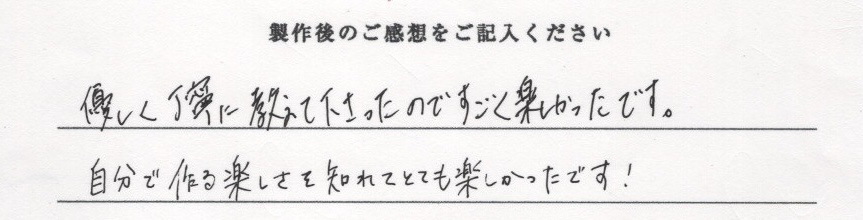 製作後のご感想をご記入ください
優しく丁寧に教えて下さったのですごく楽しかったです。
自分で作る楽しさを知れてとても楽しかったです！